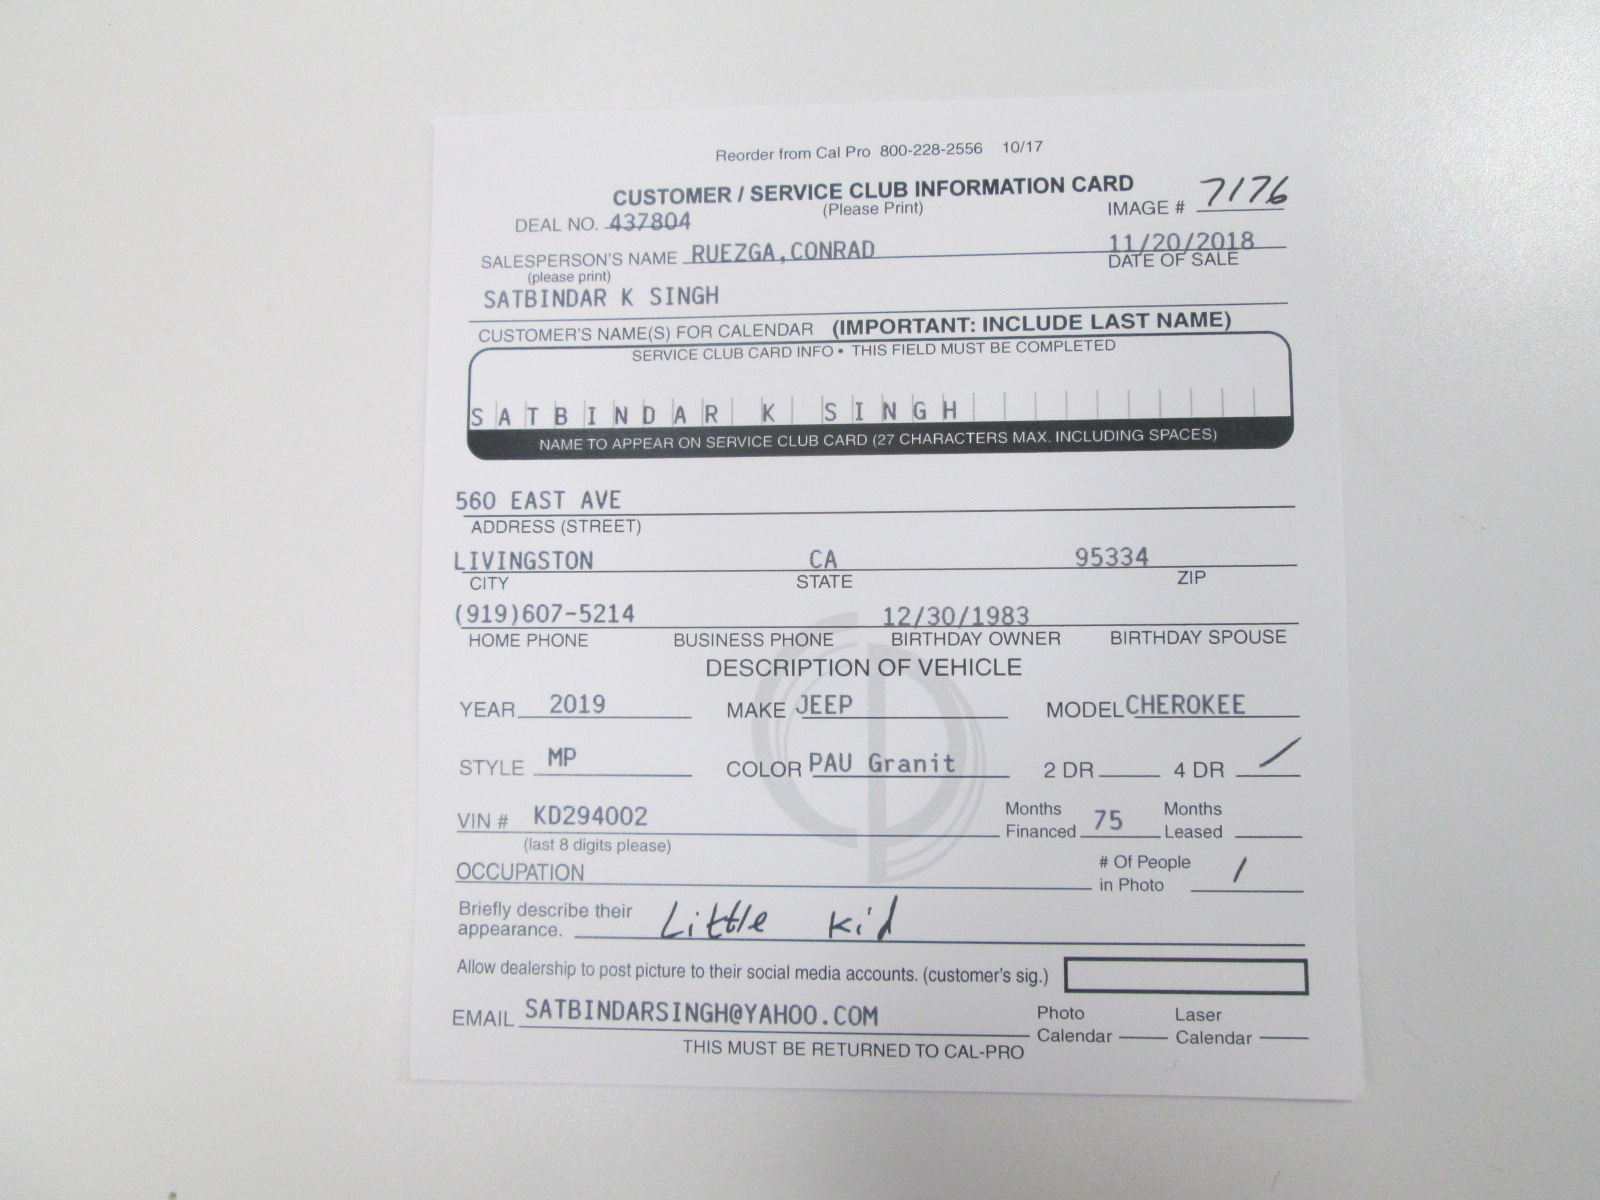 Reorder from Cal Pro 800-228-2556 10/17
CUSTOMER / SERVICE CLUB INFORMATION CARD
(Please Print)
IMAGE # 7176
DEAL NO. 437804
SALESPERSON'S NAME RUEZGA,CONRAD 11/20/2018
(please print) DATE OF SALE
SATBINDAR K SINGH
CUSTOMER'S NAME(S) FOR CALENDAR (IMPORTANT: INCLUDE LAST NAME)
SERVICE CLUB CARD INFO • THIS FIELD MUST BE COMPLETED
SATBINDAR K SINGH
NAME TO APPEAR ON SERVICE CLUB CARD (27 CHARACTERS MAX. INCLUDING SPACES)
560 EAST AVE
ADDRESS (STREET)
LIVINGSTON CA 95334
CITY STATE ZIP
(919)607-5214 12/30/1983
HOME PHONE BUSINESS PHONE BIRTHDAY OWNER BIRTHDAY SPOUSE
DESCRIPTION OF VEHICLE
YEAR 2019 MAKE JEEP MODEL CHEROKEE
STYLE MP COLOR PAU Granit 2 DR 4 DR /
VIN # KD294002 Months Financed 75 Months Leased
(last 8 digits please)
OCCUPATION # Of People in Photo 1
Briefly describe their appearance. Little kid
Allow dealership to post picture to their social media accounts. (customer's sig.)
EMAIL SATBINDARSINGH@YAHOO.COM Photo Calendar Laser Calendar
THIS MUST BE RETURNED TO CAL-PRO